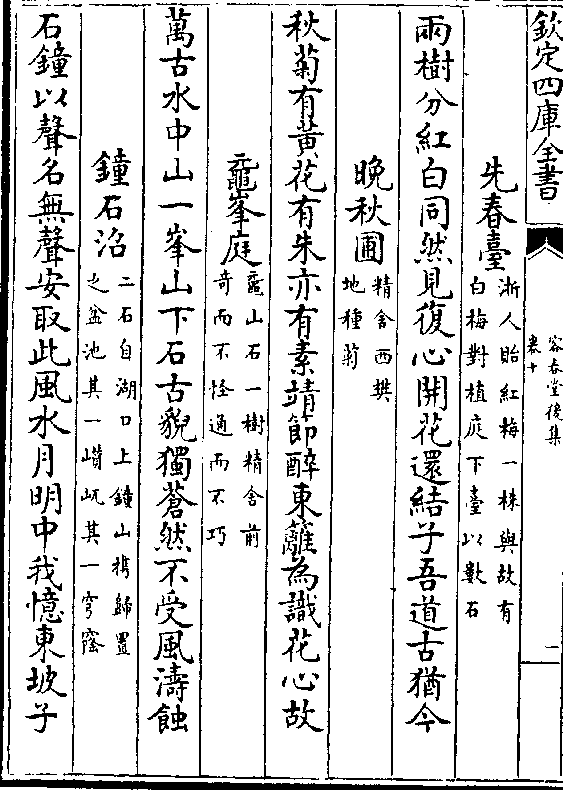 欽定四庫全書
容春堂後集
卷十
一
先春臺
浙人貽紅梅一株與故有
白梅對植庭下臺以數石
兩樹分紅白同然見復心開花還結子吾道古猶今
晚秋圃
精舍西樊
地種菊
秋菊有黃花有朱亦有素靖節醉東籬為識花心故
黿峯庭
黿山石一樹精舍前
奇而不怪通而不巧
萬古水中山一峯山下石古貌獨蒼然不受風濤蝕
鐘石沼
二石自湖口上鐘山携歸置
之盆池其一巑岏其一穹窿
石鐘以聲名無聲安取此風水月明中我憶東坡子